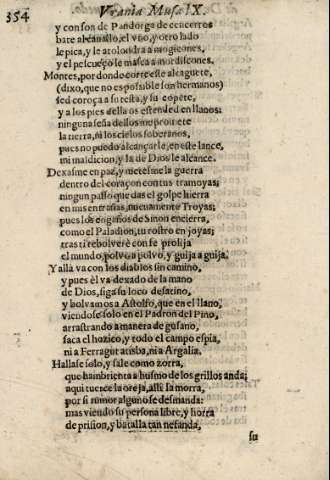 354
Vrania Musa IX.
y con son de Pandorga de cencerros
bate al cauallo, el vno, y otro lado
le pica, y le atolondra a mogicones,
y el pescueço le masca a mordiscones.
Montes, por donde corre este alcaguete,
(dixo, que no es posible son hermanos)
sed coroça a su testa, y su copete,
y a los pies dellaos estended en llanos:
ninguna seña dellos me promete
la tierra, ni los cielos soberanos,
pues no puedo alcançarle, en este lance,
mi maldicion, y la de Dios le alcance.
Dexasme en paz, y metesme la guerra
dentro del coraçon con tus tramoyas;
ningun passo que das el golpe hierra
en mis entrañas, nueuamente Troyas;
pues los engaños de Sinon encierra,
como el Paladion, tu rostro en joyas;
tras ti rebolverè con fe prolija
el mundo, polvo a polvo, y guija a guija.
Y allà va con los diablos sin camino,
y pues èl va dexado de la mano
de Dios, siga su loco desatino,
y bolvamos a Astolfo, que en el llano,
viendose solo en el Padron del Pino,
arrastrando a manera de gusano,
saca el hozico, y todo el campo espia,
ni a Ferragut atisba, ni a Argalia.
Hallase solo, y sale como zorra,
que hambrienta a husmo de los grillos anda;
aqui tuerce la oreja, alli la morra,
por si rumor alguno se desmanda:
mas viendo su persona libre, y horra
de prision, y batalla tan nefanda,
su